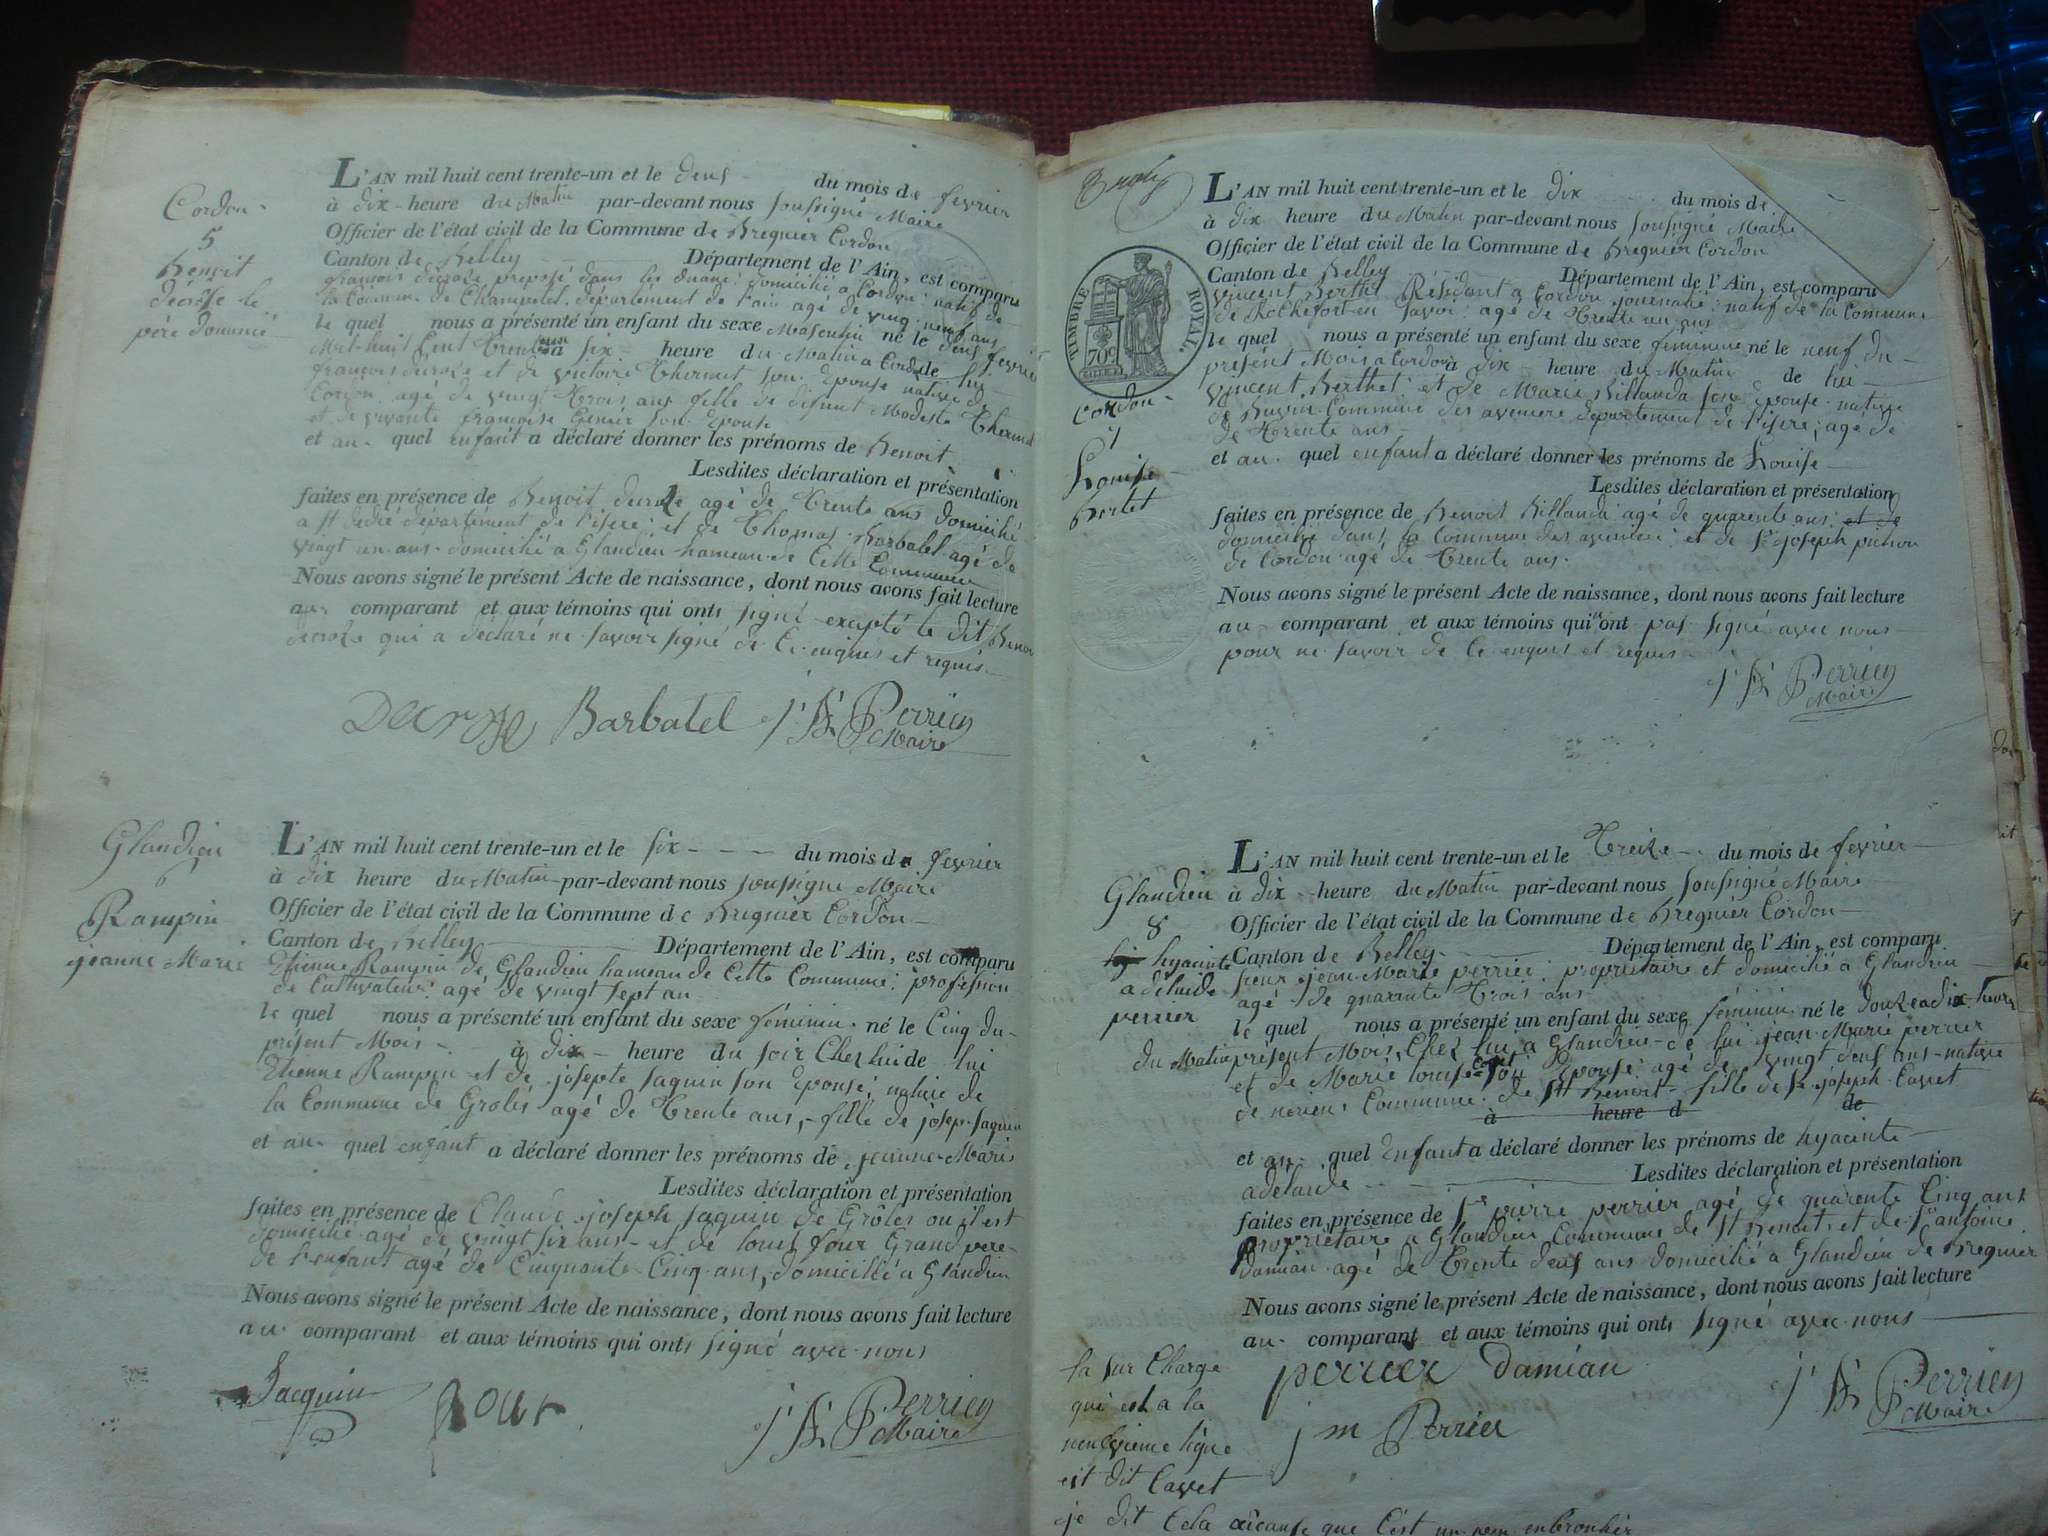 Cordon
5
Benoit
décroze le
père domicié
L'AN mil huit cent trente-un et le deux du mois de fevrier
à dix heure du Matin par-devant nous soussigné Maire
Officier de l'état civil de la Commune de Bregnier Cordon
Canton de Belley Département de l'Ain, est comparu
françois décroze preposé dans les duane domicilié a Cordon natif de
la Commune de département de l'ain agé de vingt neuf ans
le quel nous a présenté un enfant du sexe Masculin né le deux fevrier
Mil huit Cent trente un à six heure du Matin a Cordon de lui
françois décroze et de victoire Thermet son Epouse native de
Cordon agé de vingt trois ans fille de défunt Modeste Thermet
et de vivante françoise son Epouse
et au quel enfant a déclaré donner les prénoms de Benoit
Lesdites déclaration et présentation
faites en présence de Benoit decroze agé de trente ans domicilié
a département de l'isere et de Thomas Barbatel agé de
vingt un ans domicilié a Glandieu hameau de Cette Commune
Nous avons signé le présent Acte de naissance, dont nous avons fait lecture
au comparant et aux témoins qui ont signé excepté le dit Benoit
décroze qui a déclaré ne savoir signé de Ce enquis et requis
Decroze Barbatel Perrier
Maire
Glandieu
6
Rampin
jeanne Marie
L'AN mil huit cent trente-un et le six du mois de fevrier
à dix heure du Matin par-devant nous soussigné Maire
Officier de l'état civil de la Commune de Bregnier Cordon
Canton de Belley Département de l'Ain, est comparu
Etienne Rampin de Glandieu hameau de Cette Commune profession
de Cultivateur agé de vingt sept an
le quel nous a présenté un enfant du sexe féminin né le Cinq du
présent Mois à dix heure du soir Chez lui de lui
Etienne Rampin et de josepte jaquin son Epouse native de
la Commune de Grolés agé de trente ans, fille de joseph jaquin
et au quel enfant a déclaré donner les prénoms de jeanne Marie
Lesdites déclaration et présentation
faites en présence de Claude joseph jaquin de Grôles ou il est
domicilié agé de vingt six ans et de louis four Grand pere
de l'enfant agé de Cinquante Cinq ans, domicilié a Glandieu
Nous avons signé le présent Acte de naissance, dont nous avons fait lecture
au comparant et aux témoins qui ont signé avec nous
Jacquin four Perrier
Maire
TIMBRE ROYAL
70c
Cordon
7
Louise
Bertet
L'AN mil huit cent trente-un et le dix du mois de
à dix heure du Matin par-devant nous soussigné Maire
Officier de l'état civil de la Commune de Bregnier Cordon
Canton de Belley Département de l'Ain, est comparu
vincent Berthet Résidant a Cordon journalié natif de la Commune
de Rochefort en savoi agé de trente un ans
le quel nous a présenté un enfant du sexe féminin né le neuf du
présent Mois a Cordon à dix heure du Matin de lui
vincent Berthet et de Marie Billanda son Epouse native
de Commune des avenière département de l'isere, agé de
de trente ans
et au quel enfant a déclaré donner les prénoms de Louise
Lesdites déclaration et présentation
faites en présence de Benoit Billanda agé de quarente ans et de
domicilié dans la Commune des avenière et de Sr joseph pichon
de Cordon agé de trente ans
Nous avons signé le présent Acte de naissance, dont nous avons fait lecture
au comparant et aux témoins qui n'ont pas signé avec nous
pour ne savoir de Ce enquis et requis
Perrier
Maire
Glandieu
8
hyacinte
adelaide
perrier
L'AN mil huit cent trente-un et le treize du mois de fevrier
à dix heure du Matin par-devant nous soussigné Maire
Officier de l'état civil de la Commune de Bregnier Cordon
Canton de Belley Département de l'Ain, est comparu
sieur jean Marie perrier proprietaire et domicilié a Glandieu
agé de quarante trois ans
le quel nous a présenté un enfant du sexe féminin né le douze a dix heure
du Matin présent Mois Chez lui a Glandieu de lui jean Marie perrier
et de Marie louise Cavet son Epouse agé de vingt deux ans native
de Commune de St Benoit fille de Sr joseph Cavet
à heure d de
et au quel Enfant a déclaré donner les prénoms de hyacinte
adelaide
Lesdites déclaration et présentation
faites en présence de Sr pierre perrier agé de quarente Cinq ans
proprietaire a Glandieu Commune de St Benoit et de Sr antoine
damian agé de trente deux ans domicilié a Glandieu de Bregnier
Nous avons signé le présent Acte de naissance, dont nous avons fait lecture
au comparant et aux témoins qui ont signé avec nous
perrier damian
j m Perrier Perrier
Maire
la sur Charge
qui est a la
neuvieme ligne
est dit Cavet
je dit Cela